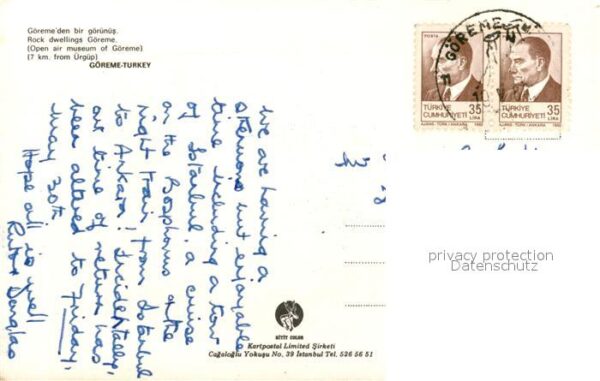 Göreme'den bir görünüş.
Rock dwellings Göreme.
(Open air museum of Göreme)
(7 km. from Ürgüp)
GÖREME-TURKEY
We are having a
strenuous but enjoyable
time including a tour
of Istanbul, a cruise
on the Bosphorus & the
night train from Istanbul
to Ankara! Incidentally,
our time of return has
been altered to Friday,
May 30th.
Hope all is well
Ruth & Douglas
GÖREME
POSTA
TÜRKİYE
CUMHURİYETİ
35
LİRA
AJANS-TÜRK / ANKARA 1982
TÜRKİYE
CUMHURİYETİ
35
LİRA
AJANS-TÜRK / ANKARA 1982
privacy protection
Datenschutz
Kartpostal Limited Şirketi
Cağaloğlu Yokuşu No. 39 Istanbul Tel. 526 56 51